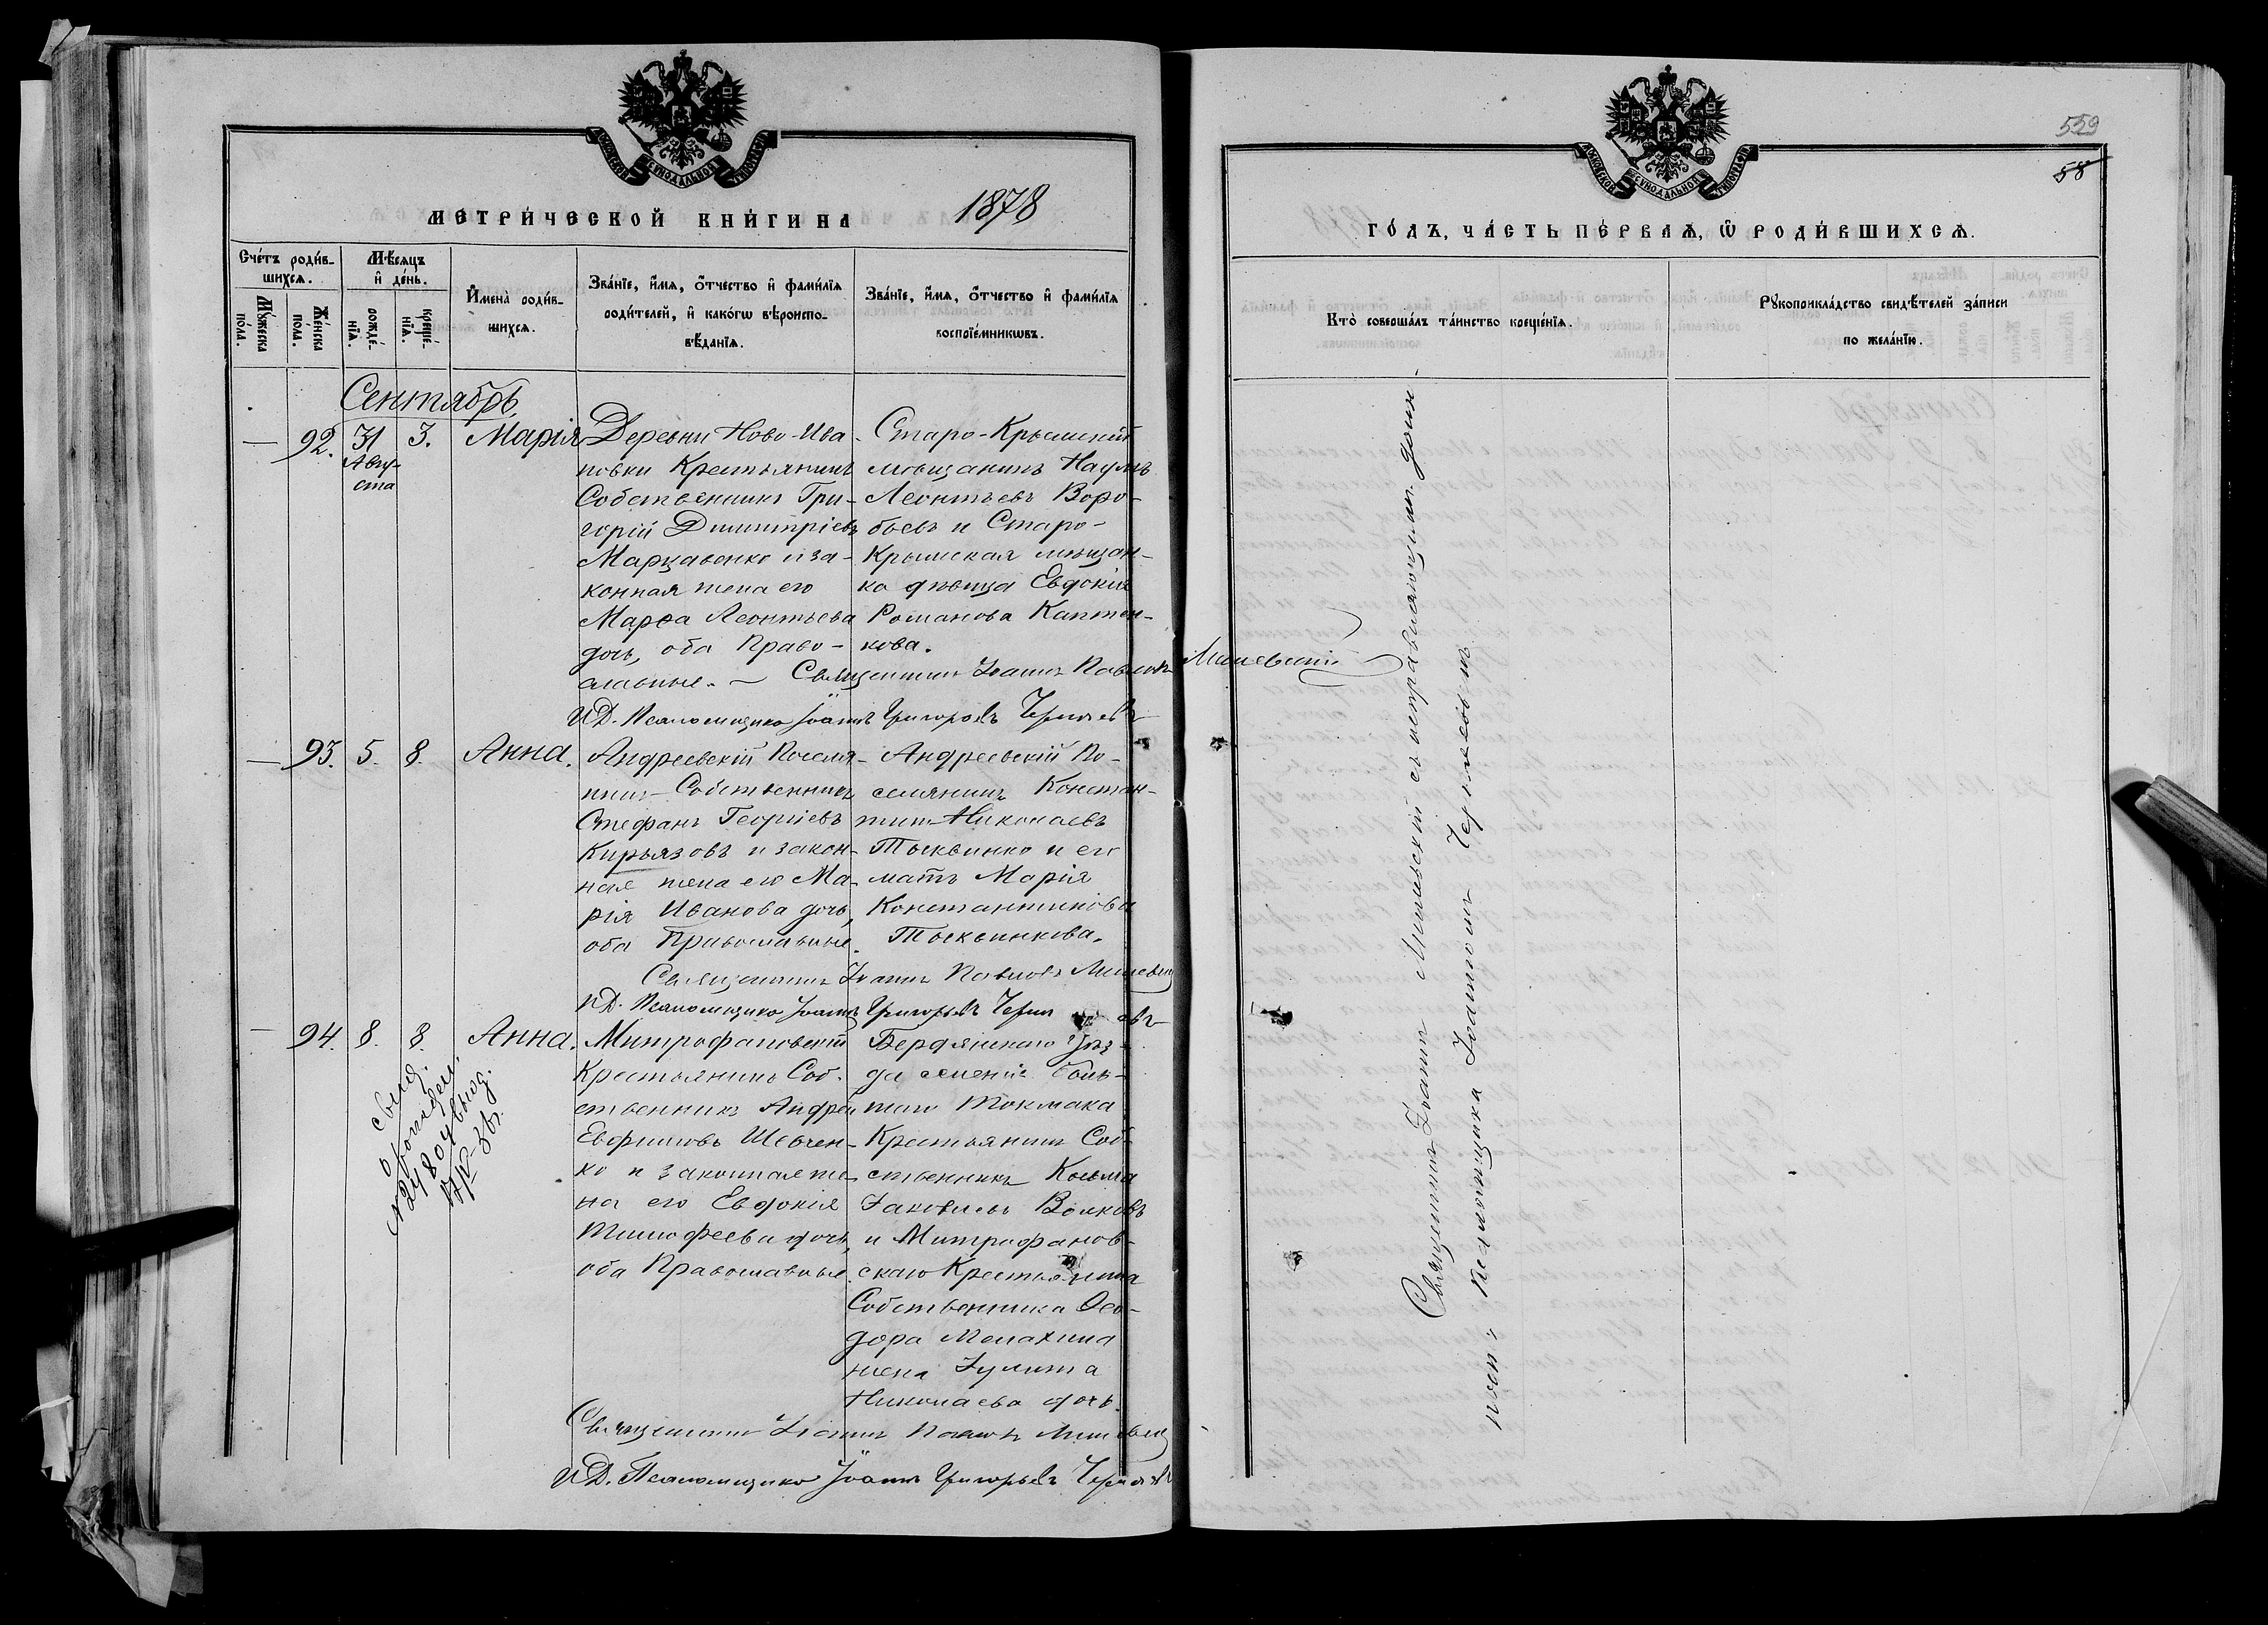 МОСКОВСКОЙ СѴНОДАЛЬНОЙ ТИПОГРАФІИ
МЕТРИ́ЧЕСКОЙ КНИ́ГИ НА 1878
Сче́тъ роди́в-
шихсѧ.
Мꙋ́жеска
по́ла.
Же́нска
по́ла.
Мѣ́сѧцъ
и҆ де́нь.
рожде́-
нїѧ.
креще́-
нїѧ.
И҆мена̀ роди́в-
шихсѧ.
Зва́нїе, и҆́мѧ, ѻ҆́тчество и҆ фами́лїѧ
роди́телей, и҆ како́гѡ вѣ́роиспо-
вѣ́данїѧ.
Зва́нїе, и҆́мѧ, ѻ҆́тчество и҆ фами́лїѧ
воспрїе́мникѡвъ.
Сентябрь
— 92. 31 Авгу-
ста
3. Марія
Деревни Ново-Ива-
новки Крестьянинъ
Собственникъ Гри-
горій Димитріевъ
Марцавенко и за-
конная жена его
Марѳа Леонтьева
дочь, оба Право-
славные. —
Старо-Крымскій
мѣщанинъ Наумъ
Леонтьевъ Воро-
бьевъ и Старо-
Крымская мѣщан-
ка дѣвица Евдокія
Романова Каптен-
кова.
Священникъ Іоаннъ Павловъ Мишевскій
И.Д. Псаломщика Іоаннъ Григорьевъ Черняевъ
— 93. 5. 8. Анна.
Андреевскій Поселя-
нинъ-Собственникъ
Стефанъ Георгіевъ
Кирьязовъ и закон-
ная жена его Ма-
рія Иванова дочь,
оба Православные.
Андреевскій По-
селянинъ Констан-
тинъ Николаевъ
Тыквинко и его
мать Марія
Константинова
Тыквинкова.
Священникъ Іоаннъ Павловъ
И.Д. Псаломщика Іоаннъ Григорьевъ
— 94. 8. 8. Анна.
Митрофановскій
Крестьянинъ Соб-
ственникъ Андрей
Евфимовъ Шевчен-
ко и законная же-
на его Евдокія
Тимофеева дочь,
оба Православные.
Бердянскаго Уѣз-
да селенія Боль-
шаго Токмака
Крестьянинъ Соб-
ственникъ Косьма
Іаковлевъ Волковъ
и Митрофанов-
скаго Крестьянина
Собственника Ѳео-
дора Мелахина
жена Іулита
Николаева дочь.
Священникъ Іоаннъ Павловъ
И.Д. Псаломщика Іоаннъ Григорьевъ Черняевъ
МОСКОВСКОЙ СѴНОДАЛЬНОЙ ТИПОГРАФІИ
559
58
ГО́ДЪ, ЧА́СТЬ ПЕ́РВАѦ, Ѽ РОДИ́ВШИХСѦ.
Кто̀ соверша́лъ та́инство креще́нїѧ.
Рꙋкоприкла́дство свидѣ́телей за́писи
по жела́нїю.
Священникъ Іоаннъ Мишевскій съ исправляющимъ долж-
ность Псаломщика Іоанномъ Черняевымъ